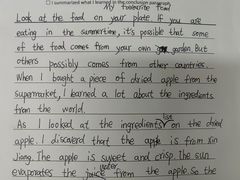 ☐ I summarized what I learned in the conclusion paragraph
My favourite Food
Look at the food on your plate. If you are
eating in the summertime, it's possible that some
of the food comes from your own garden. But
others possibly comes from other countries.
When I bought a piece of dried apple from the
supermarket, I learned a lot about the ingredients
from the world.
As I looked at the ingredients list on the dried
apple. I discoverd that the apple is from Xin
Jiang. The apple is sweet and crisp. The sun
evaporates the water from the apple. So the